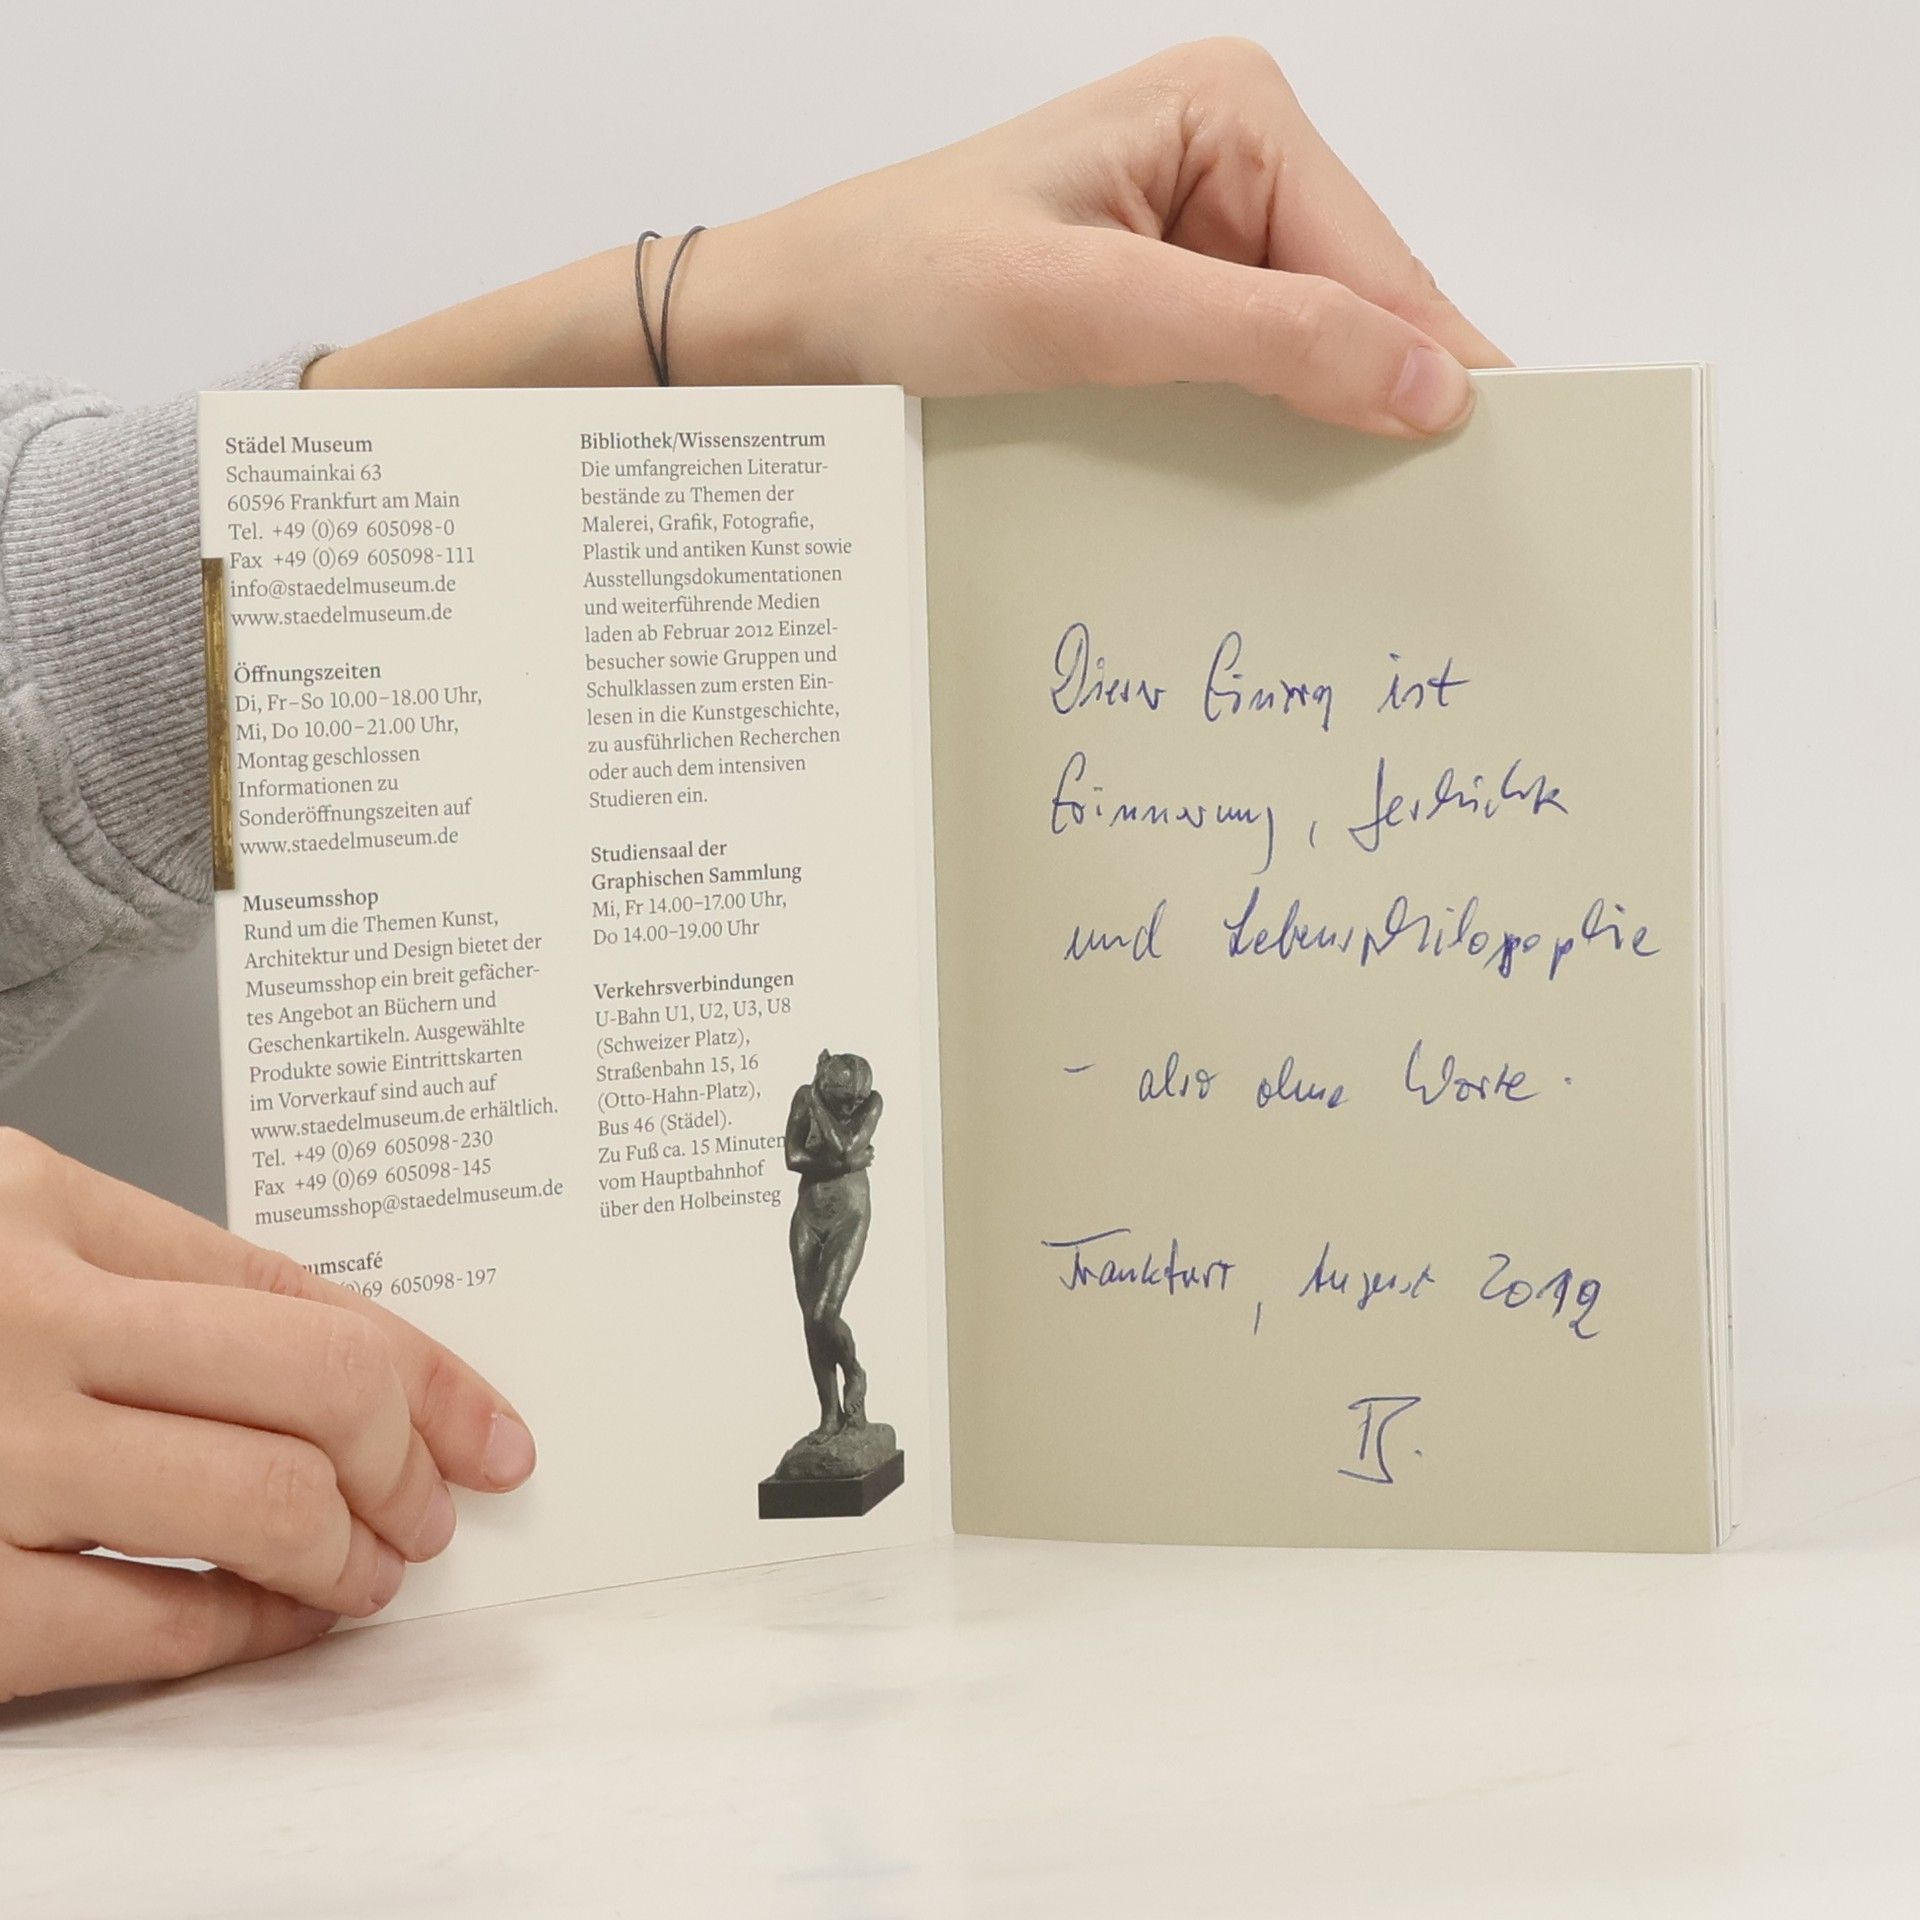 Städel Museum
Schaumainkai 63
60596 Frankfurt am Main
Tel. +49 (0)69 605098-0
Fax +49 (0)69 605098-111
info@staedelmuseum.de
www.staedelmuseum.de
Öffnungszeiten
Di, Fr–So 10.00–18.00 Uhr,
Mi, Do 10.00–21.00 Uhr,
Montag geschlossen
Informationen zu
Sonderöffnungszeiten auf
www.staedelmuseum.de
Museumsshop
Rund um die Themen Kunst,
Architektur und Design bietet der
Museumsshop ein breit gefächer-
tes Angebot an Büchern und
Geschenkartikeln. Ausgewählte
Produkte sowie Eintrittskarten
im Vorverkauf sind auch auf
www.staedelmuseum.de erhältlich.
Tel. +49 (0)69 605098-230
Fax +49 (0)69 605098-145
museumsshop@staedelmuseum.de
umscafé
)69 605098-197
Bibliothek/Wissenszentrum
Die umfangreichen Literatur-
bestände zu Themen der
Malerei, Grafik, Fotografie,
Plastik und antiken Kunst sowie
Ausstellungsdokumentationen
und weiterführende Medien
laden ab Februar 2012 Einzel-
besucher sowie Gruppen und
Schulklassen zum ersten Ein-
lesen in die Kunstgeschichte,
zu ausführlichen Recherchen
oder auch dem intensiven
Studieren ein.
Studiensaal der
Graphischen Sammlung
Mi, Fr 14.00–17.00 Uhr,
Do 14.00–19.00 Uhr
Verkehrsverbindungen
U-Bahn U1, U2, U3, U8
(Schweizer Platz),
Straßenbahn 15, 16
(Otto-Hahn-Platz),
Bus 46 (Städel).
Zu Fuß ca. 15 Minuten
vom Hauptbahnhof
über den Holbeinsteg
Dieser ist
Erinnerung, Geschichte
und Lebensphilosophie
– also ohne Worte.
Frankfurt, August 2012